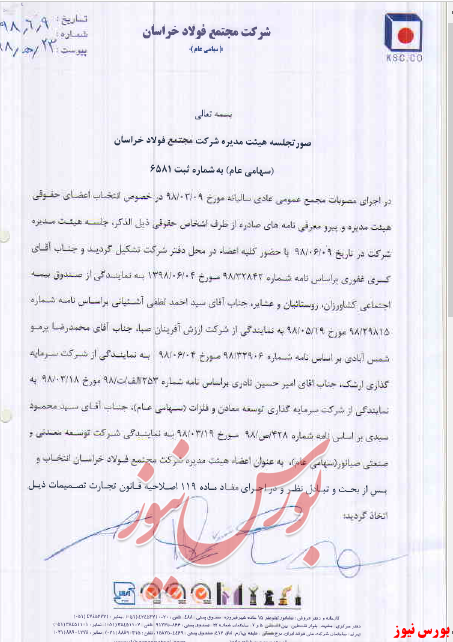 شرکت مجتمع فولاد خراسان
(سهامی عام)
تاریخ : ۹۸,۶,۹
شماره :
پیوست :
KSC.CO
بسمه تعالی
صورتجلسه هیئت مدیره شرکت مجتمع فولاد خراسان
(سهامی عام) به شماره ثبت ۶۵۸۱
در اجرای مصوبات مجمع عمومی عادی سالیانه مورخ ۹۸/۰۳/۰۹ در خصوص انتخاب اعضای حقوقی
هیئت مدیره و پیرو معرفی نامه های صادره از طرف اشخاص حقوقی ذیل الذکر، جلسه هیئت مدیره
شرکت در تاریخ ۹۸/۰۶/۰۹ با حضور کلیه اعضاء در محل دفتر شرکت تشکیل گردید و جناب آقای
کسری غفوری براساس نامه شماره ۹۸/۳۲۸۴۲ مورخ ۱۳۹۸/۰۶/۰۴ به نمایندگی از صندوق بیمه
اجتماعی کشاورزان، روستائیان و عشایر، جناب آقای سید احمد لطفی آشتیانی براساس نامه شماره
۹۸/۲۹۸۱۵ مورخ ۹۸/۰۵/۱۹ به نمایندگی از شرکت ارزش آفرینان صبا، جناب آقای محمدرضا برمو
شمس آبادی بر اساس نامه شماره ۹۸/۳۲۹۰۶ مورخ ۹۸/۰۶/۰۴ به نمایندگی از شرکت سرمایه
گذاری ارشک، جناب آقای امیر حسین نادری براساس نامه شماره ۲۵۳/الف/ت/۹۸ مورخ ۹۸/۰۳/۱۸ به
نمایندگی از شرکت سرمایه گذاری توسعه معادن و فلزات (سهامی عام)، جناب آقای سید محمود
سیدی بر اساس نامه شماره ۴۲۸/ص/۹۸ مورخ ۹۸/۰۳/۱۹ به نمایندگی شرکت توسعه معدنی و
صنعتی صبانور(سهامی عام)، به عنوان اعضاء هیئت مدیره شرکت مجتمع فولاد خراسان انتخاب و
پس از بحث و تبادل نظر و در اجرای مفاد ماده ۱۱۹ اصلاحیه قانون تجارت تصمیمات ذیل
اتخاذ گردید:
بورس نیوز
بورس نیوز